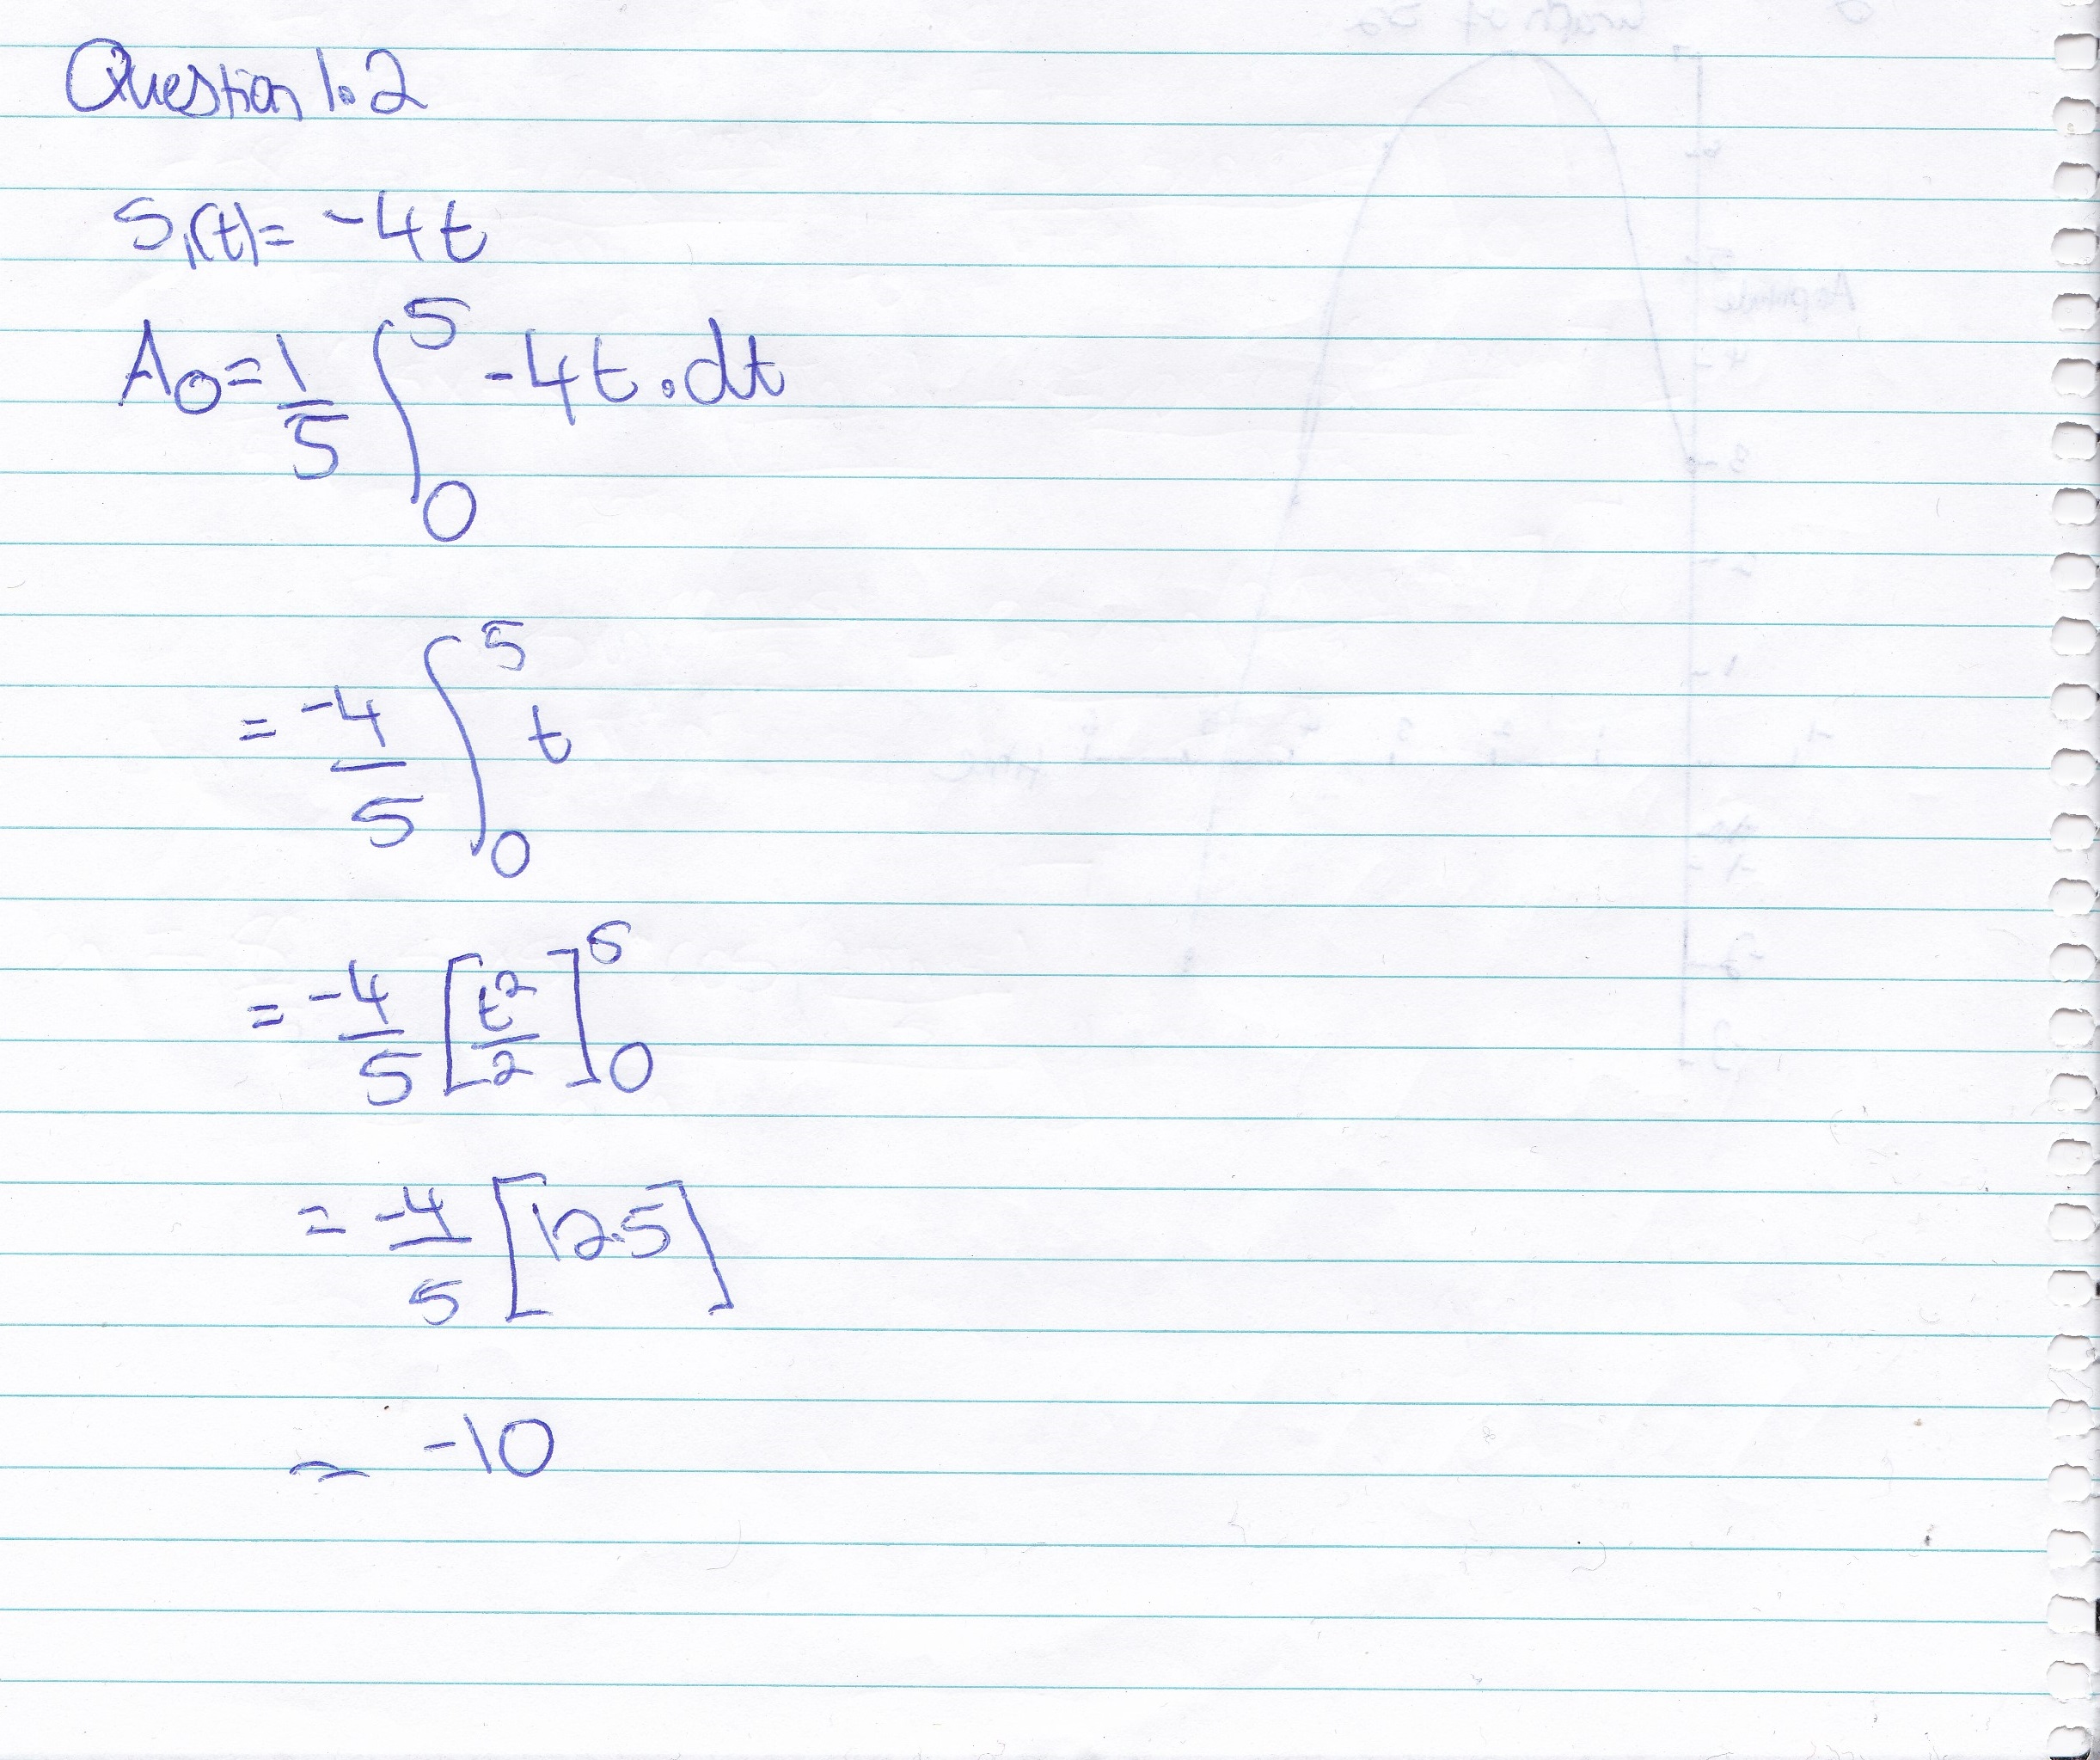 Question 1.2
S₁(t) = -4t
A₀ = 1/5 ∫₀⁵ -4t . dt
= -4/5 ∫₀⁵ t
= -4/5 [t²/2]₀⁵
= -4/5 [12.5]
= -10